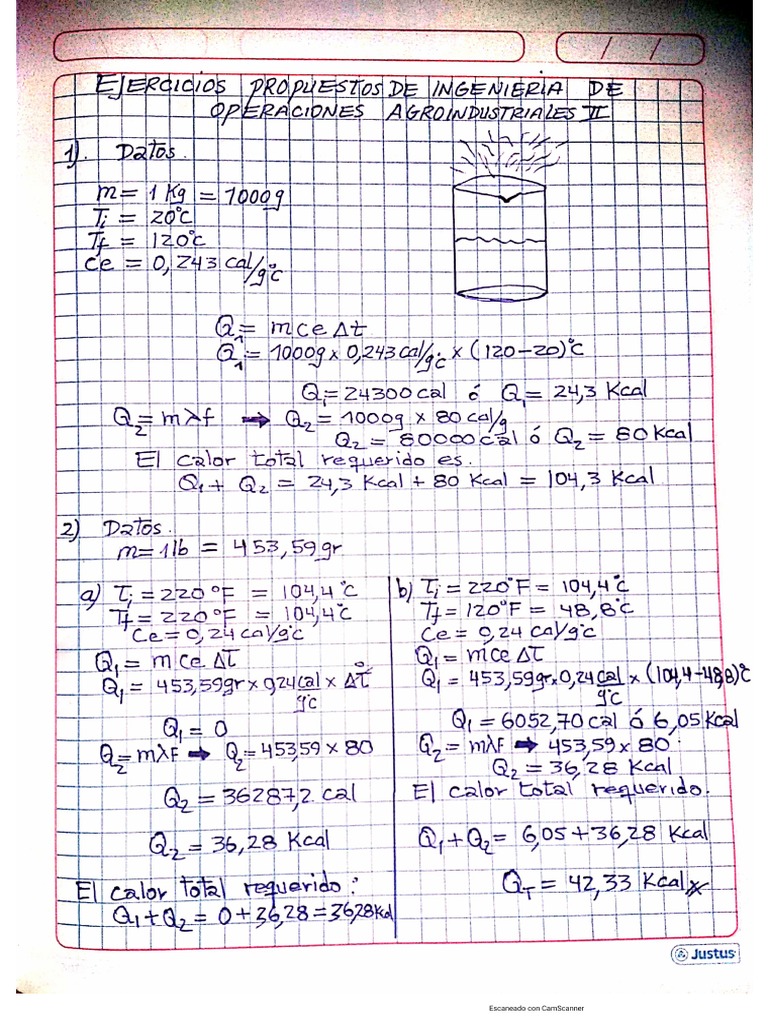 EJERCICIOS PROPUESTOS DE INGENIERIA DE
OPERACIONES AGROINDUSTRIALES VI
1). Datos.
m = 1 Kg = 1000g
Ti = 20°C
Tf = 120°C
Ce = 0,243 cal/g°C
Q1 = m ce Δt
Q1 = 1000g x 0,243 cal/g°C x (120-20)°C
Q1 = 24300 cal ó Q1 = 24,3 Kcal
Q2 = mλf → Q2 = 1000g x 80 cal/g
Q2 = 80000 cal ó Q2 = 80 Kcal
El calor total requerido es.
Q1 + Q2 = 24,3 Kcal + 80 Kcal = 104,3 Kcal
2) Datos.
m = 1lb = 453,59 gr
a) Ti = 220°F = 104,4°C
Tf = 220°F = 104,4°C
Ce = 0,24 cal/g°C
Q1 = m ce ΔT
Q1 = 453,59gr x 0,24 cal/g°C x ΔT°
Q1 = 0
Q2 = mλF → Q2 = 453,59 x 80
Q2 = 36287,2 cal
Q2 = 36,28 Kcal
El calor total requerido:
Q1 + Q2 = 0 + 36,28 = 36,28 Kcal
b) Ti = 220°F = 104,4°C
Tf = 120°F = 48,8°C
Ce = 0,24 cal/g°C
Q1 = m ce ΔT
Q1 = 453,59gr x 0,24 cal/g°C x (104,4-48,8)°C
Q1 = 6052,70 cal ó 6,05 Kcal
Q2 = mλF → 453,59 x 80
Q2 = 36,28 Kcal
El calor total requerido.
Q1 + Q2 = 6,05 + 36,28 Kcal
QT = 42,33 Kcal
Justus
Escaneado con CamScanner